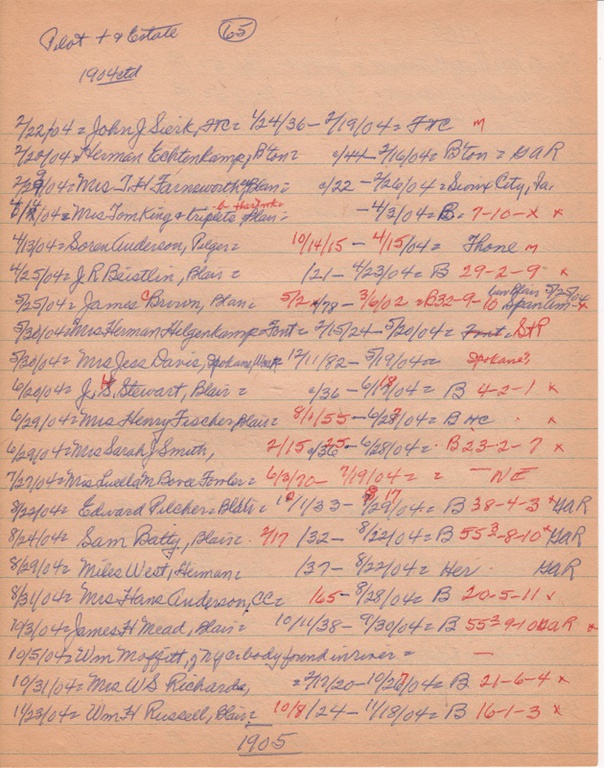 Pilot + & Estate 65
1904 ctd
2/22/04 = John J Sierk, FtC = 1/24/36 - 2/19/04 = FtC m
2/26/04 = Herman Echtenkamp, Bton = c/44 - 2/16/04 = Bton = GAR
2/29/04 = Mrs T H Farnsworth, Blair = c/22 - 2/26/04 = Sioux City, Ia.
b. Har Imke
4/04 = Mrs Tom King & triplets, Blair = - 4/3/04 = B. 7-10-x x
4/13/04 = Soren Anderson, Pilger = 10/14/15 - 4/15/04 = Thone m
4/25/04 = J R Beistlin, Blair = /21 - 4/23/04 = B 29-2-9 x
5/25/04 = James C Brown, Blair = 5/2/78 - 3/6/02 = B 32-9-10 Blair 5/25/04 Span Am x
5/30/04 = Mrs Herman Helgenkamp = Font = 2/15/24 - 5/20/04 = Font = StP
5/30/04 = Mrs Jess Davis, Spokane, Wash = 12/11/82 - 5/19/04 = Spokane?
6/20/04 = J. H S. Stewart, Blair = c/36 - 6/18/04 = B 4-2-1 x
6/29/04 = Mrs Henry Fischer, Blair = 8/1/55 - 6/28/04 = B HC x
6/29/04 = Mrs Sarah J Smith, 2/15 c/36 25 - 6/28/04 = B 23-2-7 x
7/27/04 = Mrs Luella M Bovee Fowler = 6/3/70 - 7/19/04 = = — NE
8/22/04 = Edward Pilcher = Blair = 10/1/33 - 8/17 /29/04 = B 38-4-3 x GAR
8/24/04 = Sam Batty, Blair = 2/17 /32 - 8/22/04 = B 55 3-8-10 x GAR
8/29/04 = Miles West, Herman = /37 - 8/22/04 = Her. GAR
8/31/04 = Mrs Hans Anderson, CC = 165 - 8/28/04 = B 20-5-11 x
10/3/04 = James H Mead, Blair = 10/11/38 - 9/30/04 = B 55 3-9-10 GAR x
10/5/04 = Wm Moffitt, of NYC = body found in river = —
10/31/04 = Mrs W S Richards, = 2/17/20 - 10/26/04 = B 21-6-4 x
11/23/04 = Wm H Russell, Blair = 10/8/24 - 11/18/04 = B 16-1-3 x
1905